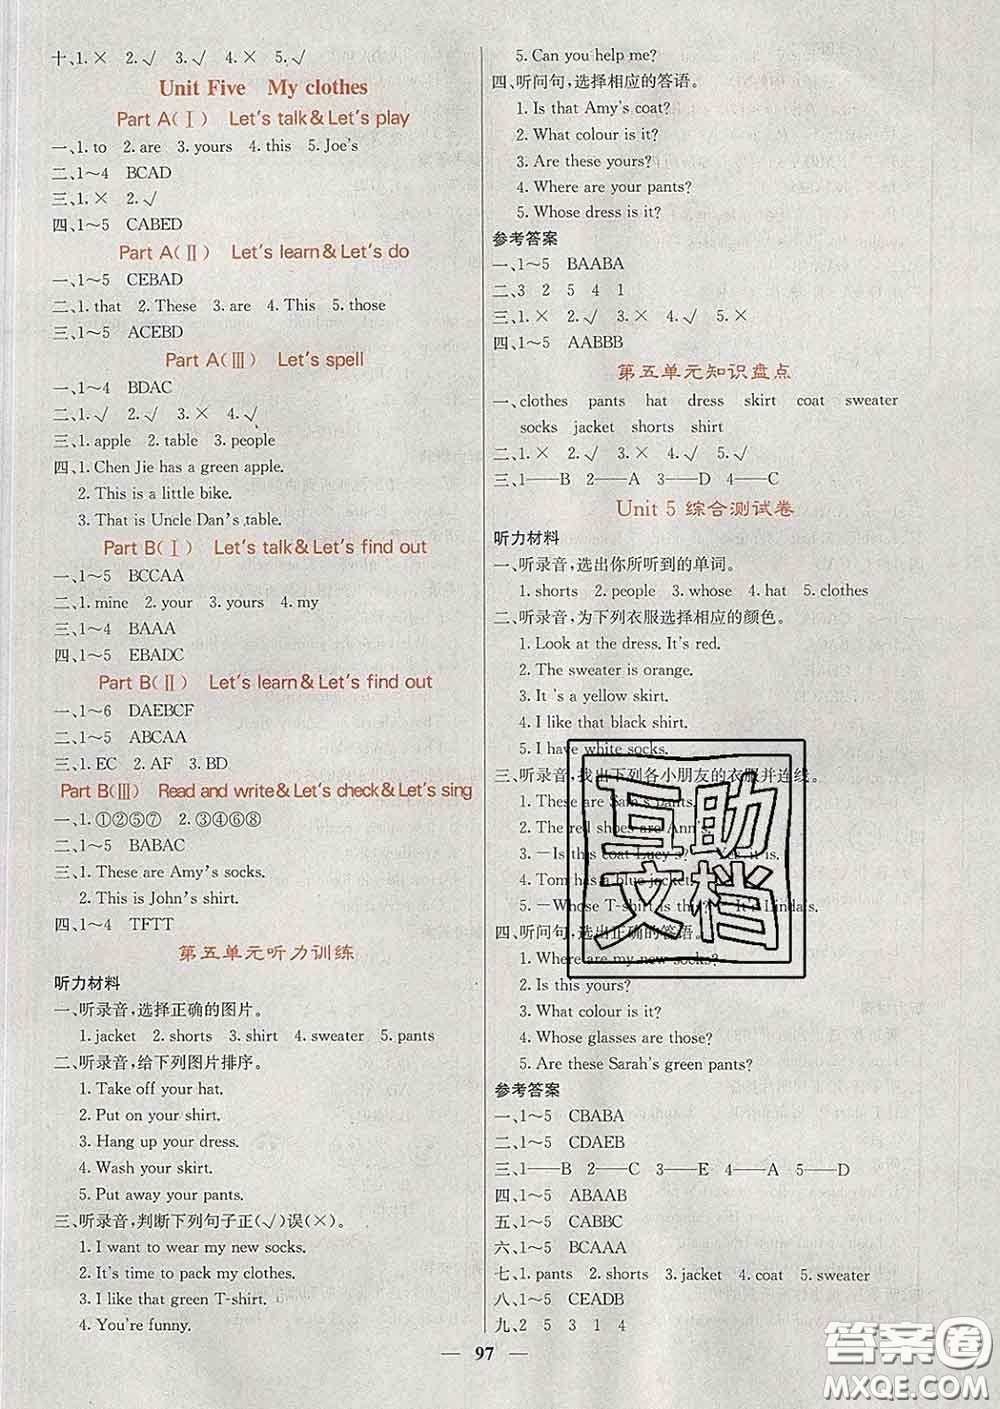 十、1. × 2. √ 3. √ 4. × 5. √
Unit Five My clothes
Part A(Ⅰ) Let's talk & Let's play
一、1. to 2. are 3. yours 4. this 5. Joe's
二、1～4 BCAD
三、1. × 2. √
四、1～5 CABED
Part A(Ⅱ) Let's learn & Let's do
一、1～5 CEBAD
二、1. that 2. These 3. are 4. This 5. those
三、1～5 ACEBD
Part A(Ⅲ) Let's spell
一、1～4 BDAC
二、1. √ 2. √ 3. × 4. √
三、1. apple 2. table 3. people
四、1. Chen Jie has a green apple.
2. This is a little bike.
3. That is Uncle Dan's table.
Part B(Ⅰ) Let's talk & Let's find out
一、1～5 BCCAA
二、1. mine 2. your 3. yours 4. my
三、1～4 BAAA
四、1～5 EBADC
Part B(Ⅱ) Let's learn & Let's find out
一、1～6 DAEBCF
二、1～5 ABCAA
三、1. EC 2. AF 3. BD
Part B(Ⅲ) Read and write & Let's check & Let's sing
一、1. ①②⑤⑦ 2. ③④⑥⑧
二、1～5 BABAC
三、1. These are Amy's socks.
2. This is John's shirt.
四、1～4 TFTT
第五单元听力训练
听力材料
一、听录音,选择正确的图片。
1. jacket 2. shorts 3. shirt 4. sweater 5. pants
二、听录音,给下列图片排序。
1. Take off your hat.
2. Put on your shirt.
3. Hang up your dress.
4. Wash your skirt.
5. Put away your pants.
三、听录音,判断下列句子正(√)误(×)。
1. I want to wear my new socks.
2. It's time to pack my clothes.
3. I like that green T-shirt.
4. You're funny.
5. Can you help me?
四、听问句,选择相应的答语。
1. Is that Amy's coat?
2. What colour is it?
3. Are these yours?
4. Where are your pants?
5. Whose dress is it?
参考答案
一、1～5 BAABA
二、3 2 5 4 1
三、1. × 2. √ 3. × 4. √ 5. ×
四、1～5 AABBB
第五单元知识盘点
一、clothes pants hat dress skirt coat sweater
socks jacket shorts shirt
二、1. × 2. √ 3. × 4. √ 5. √
三、1——B 2——A 3——D 4——C
Unit 5 综合测试卷
听力材料
一、听录音,选出你所听到的单词。
1. shorts 2. people 3. whose 4. hat 5. clothes
二、听录音,为下列衣服选择相应的颜色。
1. Look at the dress. It's red.
2. The sweater is orange.
3. It 's a yellow skirt.
4. I like that black shirt.
5. I have white socks.
三、听录音,找出下列各小朋友的衣服并连线。
1. These are Sam's pants.
2. The red shoes are Ann's.
3. —Is this coat Lucy's? —Yes, it is.
4. Tom has a blue jacket.
5. —Whose T-shirt is this? —It is Linda's.
四、听问句,选出正确的答语。
1. Where are my new socks?
2. Is this yours?
3. What colour is it?
4. Whose glasses are those?
5. Are these Sarah's green pants?
参考答案
一、1～5 CBABA
二、1～5 CDAEB
三、1——B 2——C 3——E 4——A 5——D
四、1～5 ABAAB
五、1～5 CABBC
六、1～5 BCAAA
七、1. pants 2. shorts 3. jacket 4. coat 5. sweater
八、1～5 CEADB
九、2 5 3 1 4
— 97 —
互助
文档
答案圈
MXQE.COM